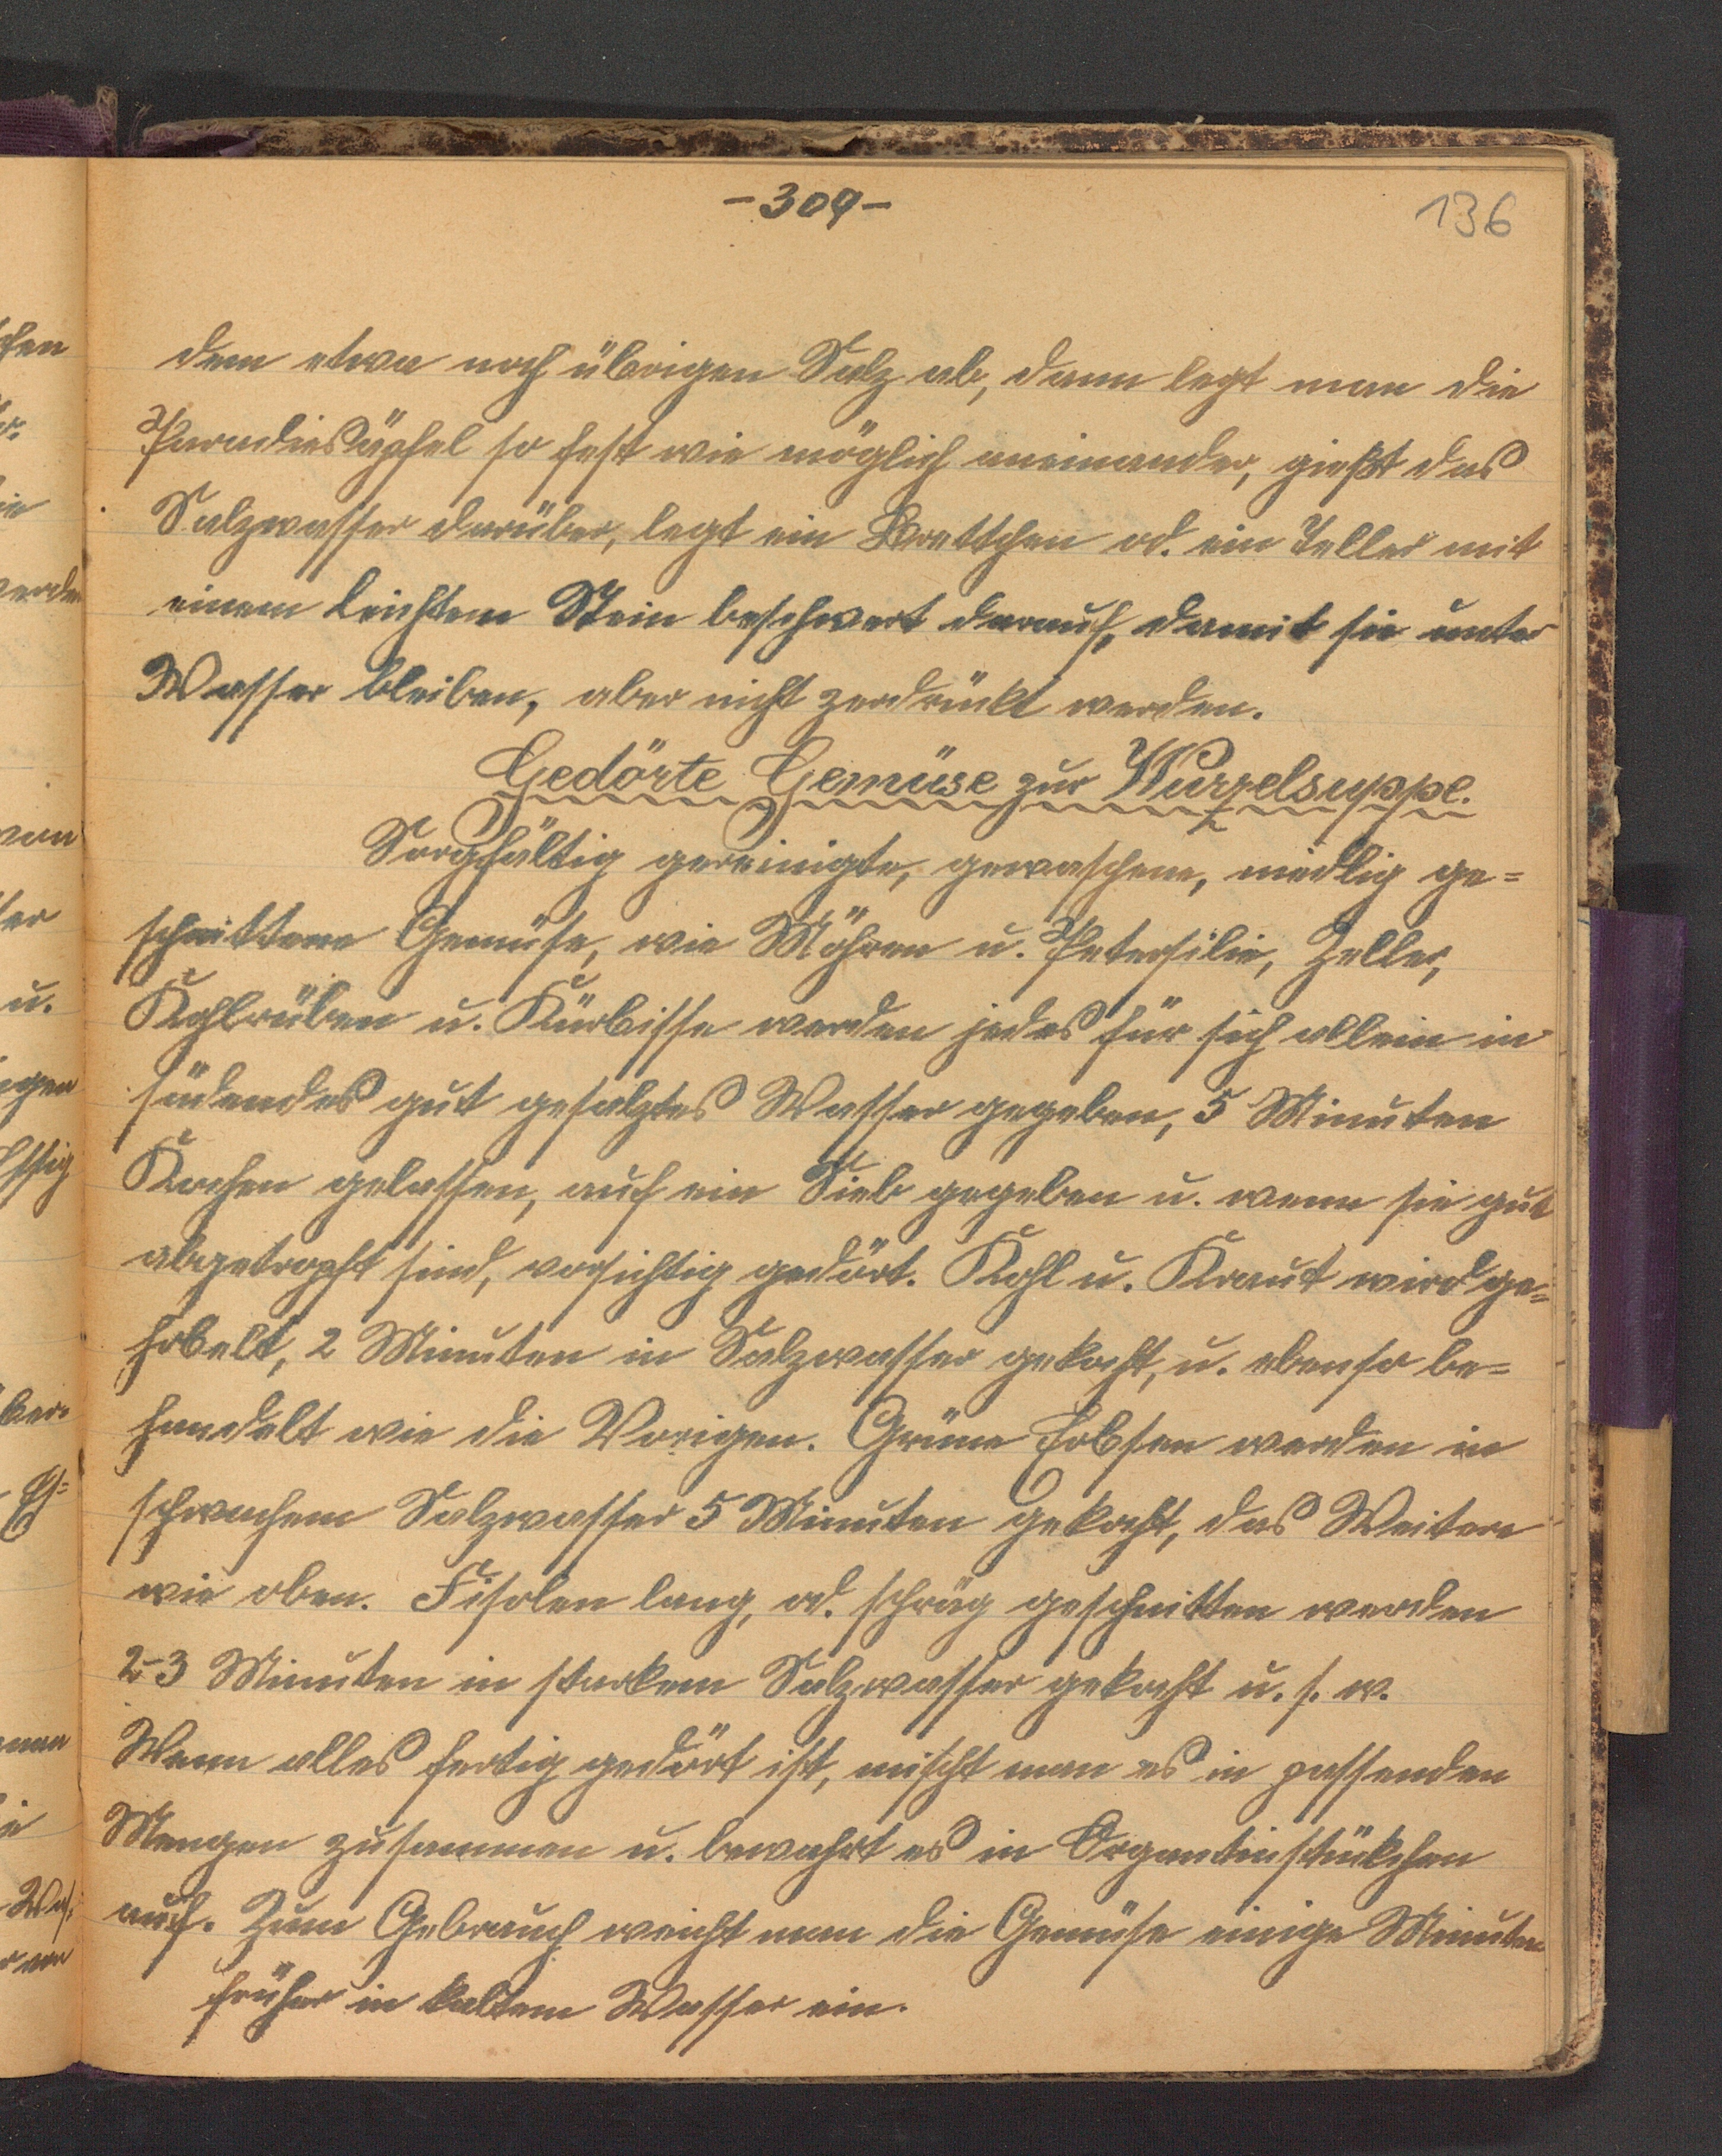 -309-
136
dem etwa noch übrigen Salz ab, dann legt man die
Paradiesäpfel so fest wie möglich aneinander, gießt das
Salzwasser darüber, legt ein Brettchen od. ein Teller mit
einem leichten Stein beschwert darauf, damit sie unter
Wasser bleiben, aber nicht zerdrückt werden.
Gedörte Gemüse zur Wurzelsuppe.
Sorgfältig gereinigte, gewaschene, nudlig ge=
schnittene Gemüse, wie Möhren u. Petersilie, Zeller,
Kohlrüben u. Kürbisse werden jedes für sich allein in
südendes gut gesalztes Wasser gegeben, 5 Minuten
Kochen gelassen, auf ein Sieb gegeben u. wenn sie gut
abgetropft sind, vorsichtig gedört. Kohl u. Kraut wird ge=
hobelt, 2 Minuten in Salzwasser gekocht, u. ebenso be=
handelt wie die Vorigen. Grüne Erbsen werden in
schwachem Salzwasser 5 Minuten gekocht, das Weitere
wie oben. Fisolen lang, od. schräg geschnitten werden
2-3 Minuten in starkem Salzwasser gekocht u. s. w.
Wenn alles fertig gedört ist, mischt man es in passenden
Mengen zusammen u. bewahrt es in Organtinstückchen
auf. Zum Gebrauch weicht man die Gemüse einige Minuten
früher in kaltem Wasser ein.